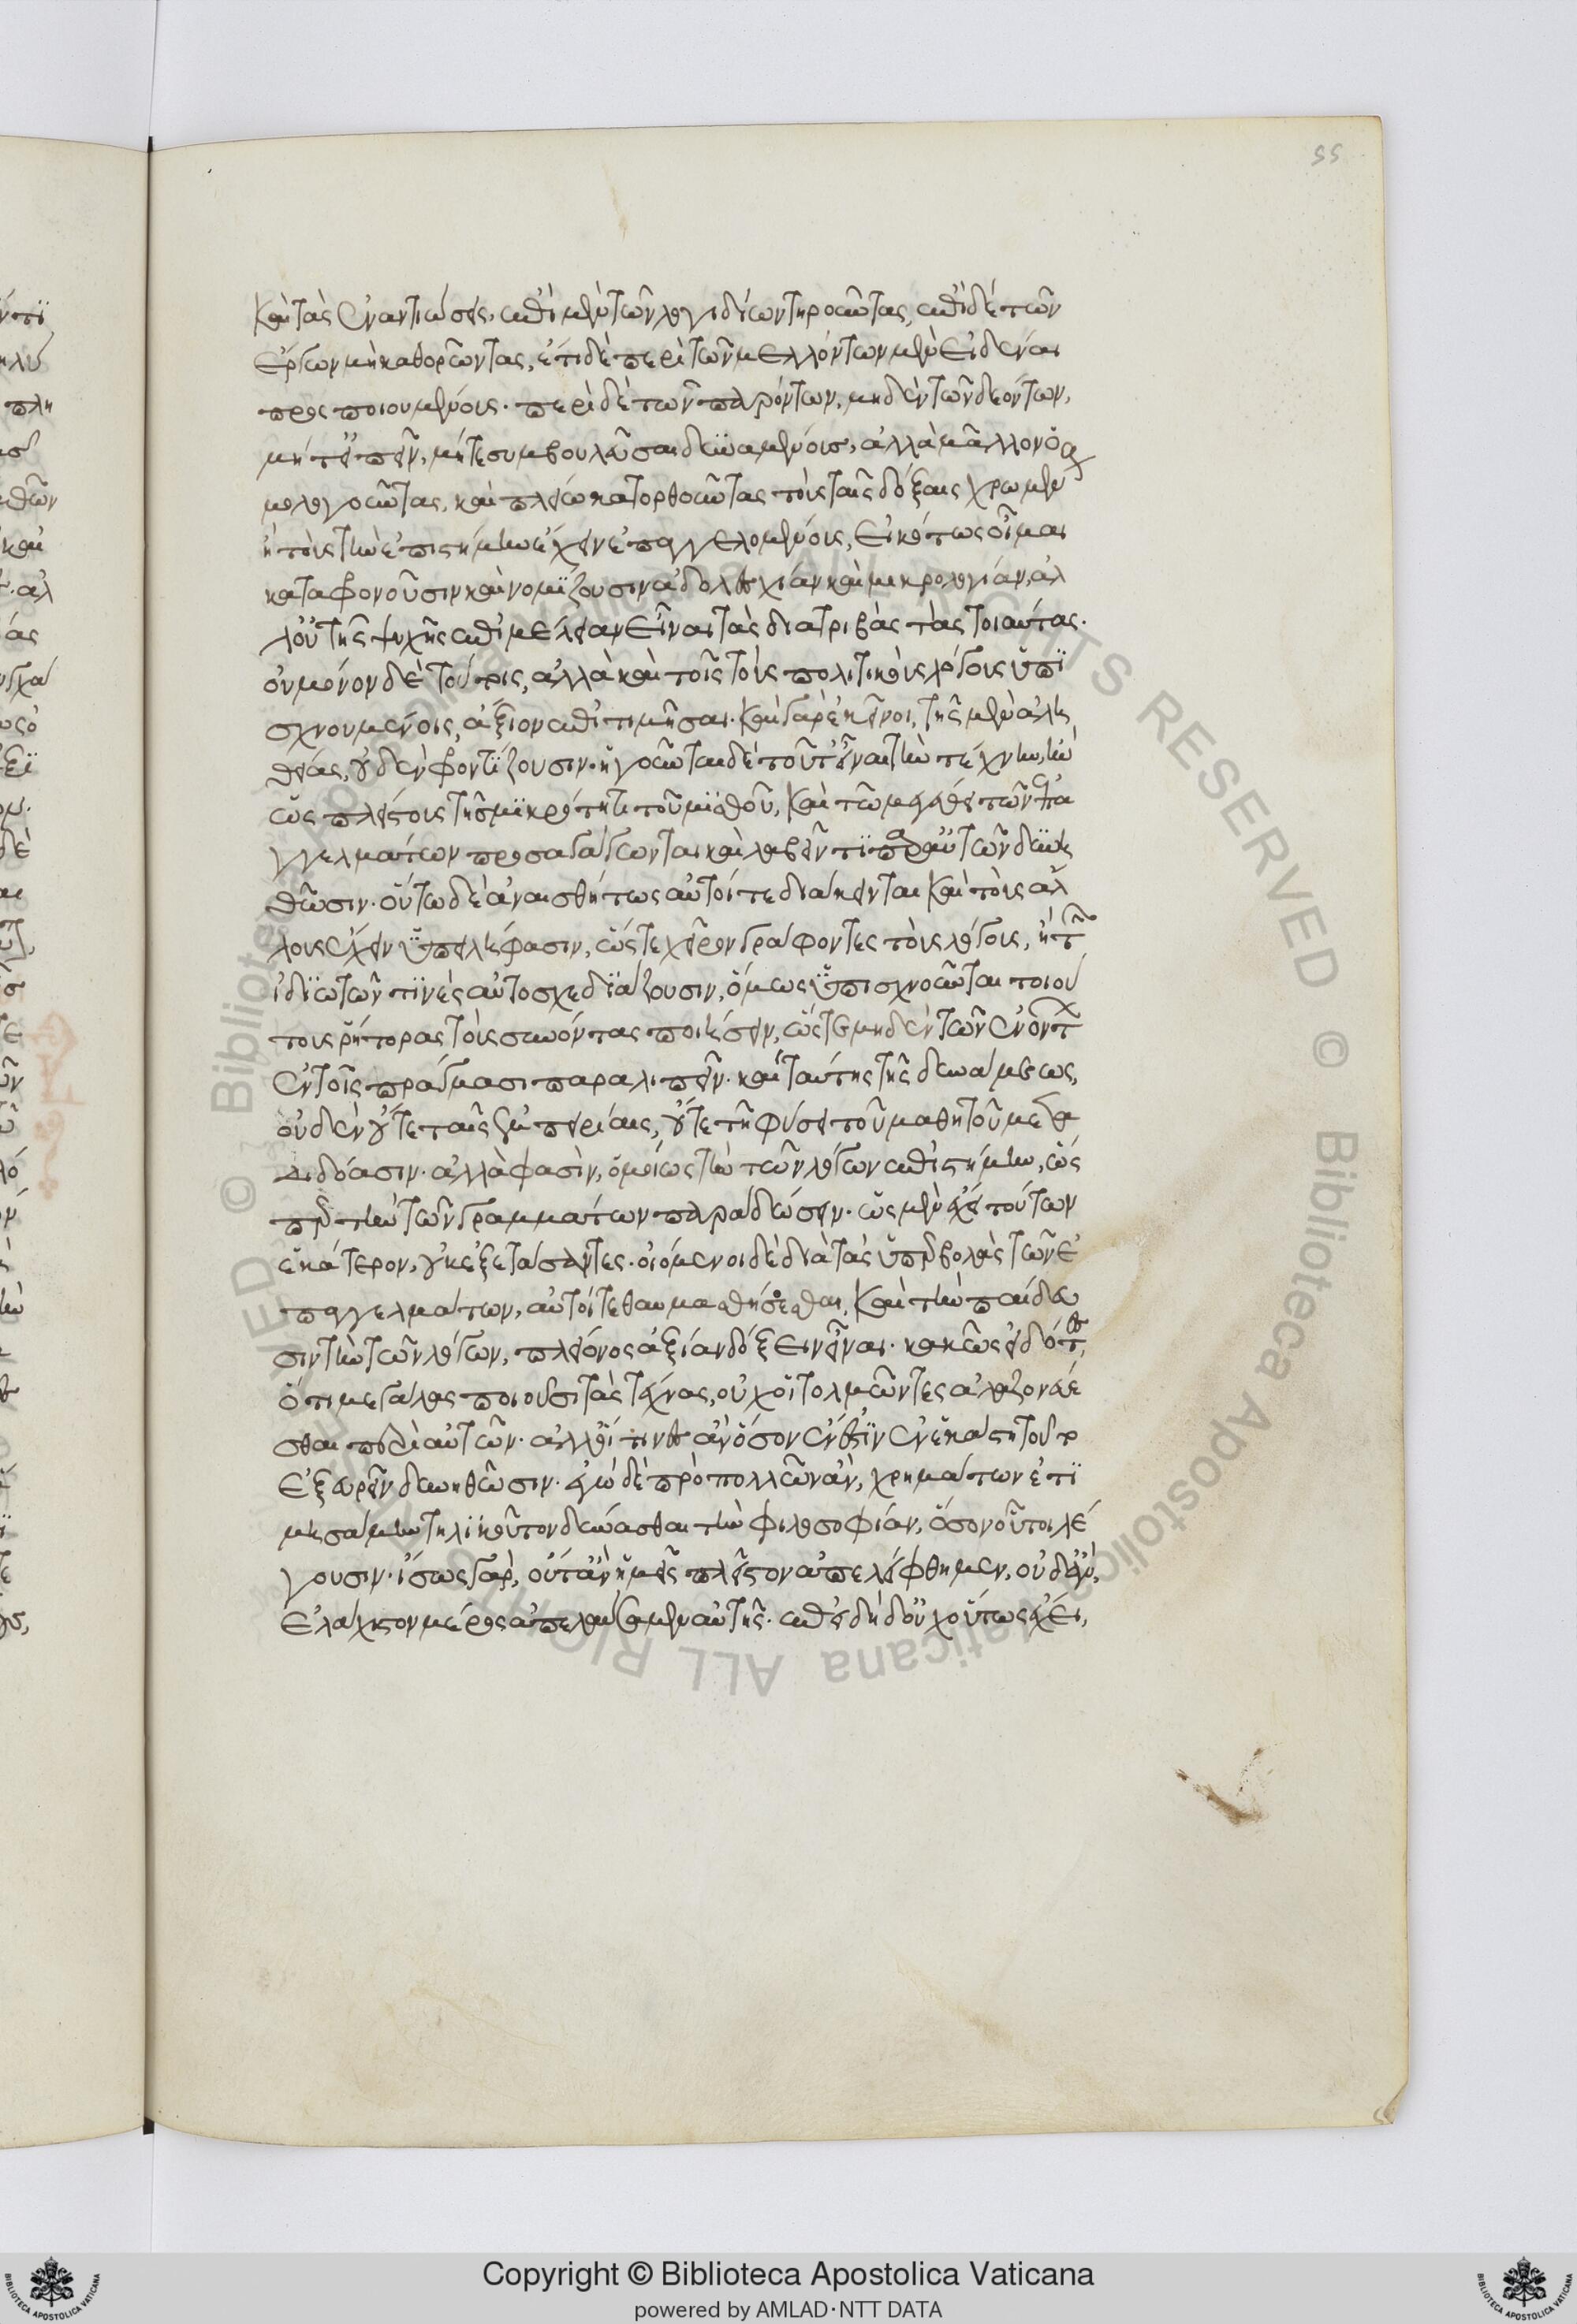 καὶ τὰς ἐναντιώσεις, ἐπὶ μὲν τῶν λογιδίων τηροῦντας, ἐπὶ δὲ τῶν
ἔργων μὴ καθορῶντας, ἔτι δὲ περὶ τῶν μελλόντων μὲν εἰδέναι
προσποιουμένους· περὶ δὲ τῶν παρόντων, μηδὲν τῶν δεόντων,
μήτ' εἰπεῖν, μήτε συμβουλεῦσαι δυναμένους, ἀλλὰ μᾶλλον ὁ
μολογοῦντας, καὶ πλείω κατορθοῦντας τοὺς ταῖς δόξαις χρωμέν
ἢ τοὺς τὴν ἐπιστήμην ἔχειν ἐπαγγελομένους, εἰκότως οἶμαι
καταφονοῦσιν καὶ νομίζουσιν ἀδολεσχίαν καὶ μικρολογίαν, ἀλ
λ' οὐ τῆς ψυχῆς ἐπιμέλειαν εἶναι τὰς διατριβὰς τὰς τοιαύτας.
οὐ μόνον δὲ τούτοις, ἀλλὰ καὶ τοῖς τοὺς πολιτικοὺς λόγους ὑπι
σχνουμένοις, ἄξιον ἐπιτιμῆσαι. καὶ γὰρ ἐκεῖνοι, τῆς μὲν ἀλη
θείας, οὐδὲν φοντίζουσιν· ἡγοῦνται δὲ τοῦτ' εἶναι τὴν τέχνην, ἢν
ὡς πλείστους τῇ σμικρότητι τοῦ μισθοῦ, καὶ τῷ μεγέθει τῶν ἐπα
γγελμάτων προσαγάγωνται καὶ λαβεῖν τι παρ' αὐτῶν δυνη
θῶσιν. οὕτω δὲ ἀναισθήτως αὐτοί τε διάκεινται καὶ τοὺς ἄλ
λους ἔχειν ὑπειλήφασιν, ὥστε χεῖρον γράφοντες τοὺς λόγους, ἢ τῶν
ἰδιωτῶν τινὲς αὐτοσχεδιάζουσιν, ὅμως ὑπισχνοῦνται τοιού
τους ῥήτορας τοὺς συνόντας ποιήσειν, ὥστε μηδὲν τῶν ἐνόντων
ἐν τοῖς πράγμασι παραλιπεῖν. καὶ ταύτης τῆς δυνάμεως,
οὐδὲν οὔτε ταῖς ἐμπειρίαις, οὔτε τῇ φύσει τοῦ μαθητοῦ μετα
διδόασιν. ἀλλὰ φασὶν, ὁμοίως τὴν τῶν λόγων ἐπιστήμην, ὥσ
περ τὴν τῶν γραμμάτων παραδώσειν. ὡς μὲν ἔχει τούτων
ἑκάτερον, οὐκ ἐξετάσαντες. οἰόμενοι δὲ διὰ τὰς ὑπερβολὰς τῶν ἐ
παγγελμάτων, αὐτοί τε θαυμασθήσεσθαι, καὶ τὴν παίδευ
σιν τὴν τῶν λόγων, πλείονος ἀξίαν δόξειν εἶναι. κακῶς εἰδότες,
ὅτι μεγάλας ποιοῦσι τὰς τέχνας, οὐχ οἱ τολμῶντες ἀλαζονεύε
σθαι περὶ αὐτῶν. ἀλλ' οἵτινες ἂν ὅσον ἔνεστιν ἐν ἑκάστῃ τοῦτο
ἐξευρεῖν δυνηθῶσιν. ἐγὼ δὲ πρὸ πολλῶν ἂν, χρημάτων ἐτι
μησάμην τηλικοῦτον δύνασθαι τὴν φιλοσοφίαν, ὅσον οὗτοι λέ
γουσιν. ἴσως γὰρ, οὔτ' ἂν ἡμεῖς πλεῖστον ἀπελείφθημεν, οὐδ' ἂν,
ἐλάχιστον μέρος ἀπελαύσαμεν αὐτῆς. ἐπειδὴ δ' οὐχ οὕτως ἔχει,